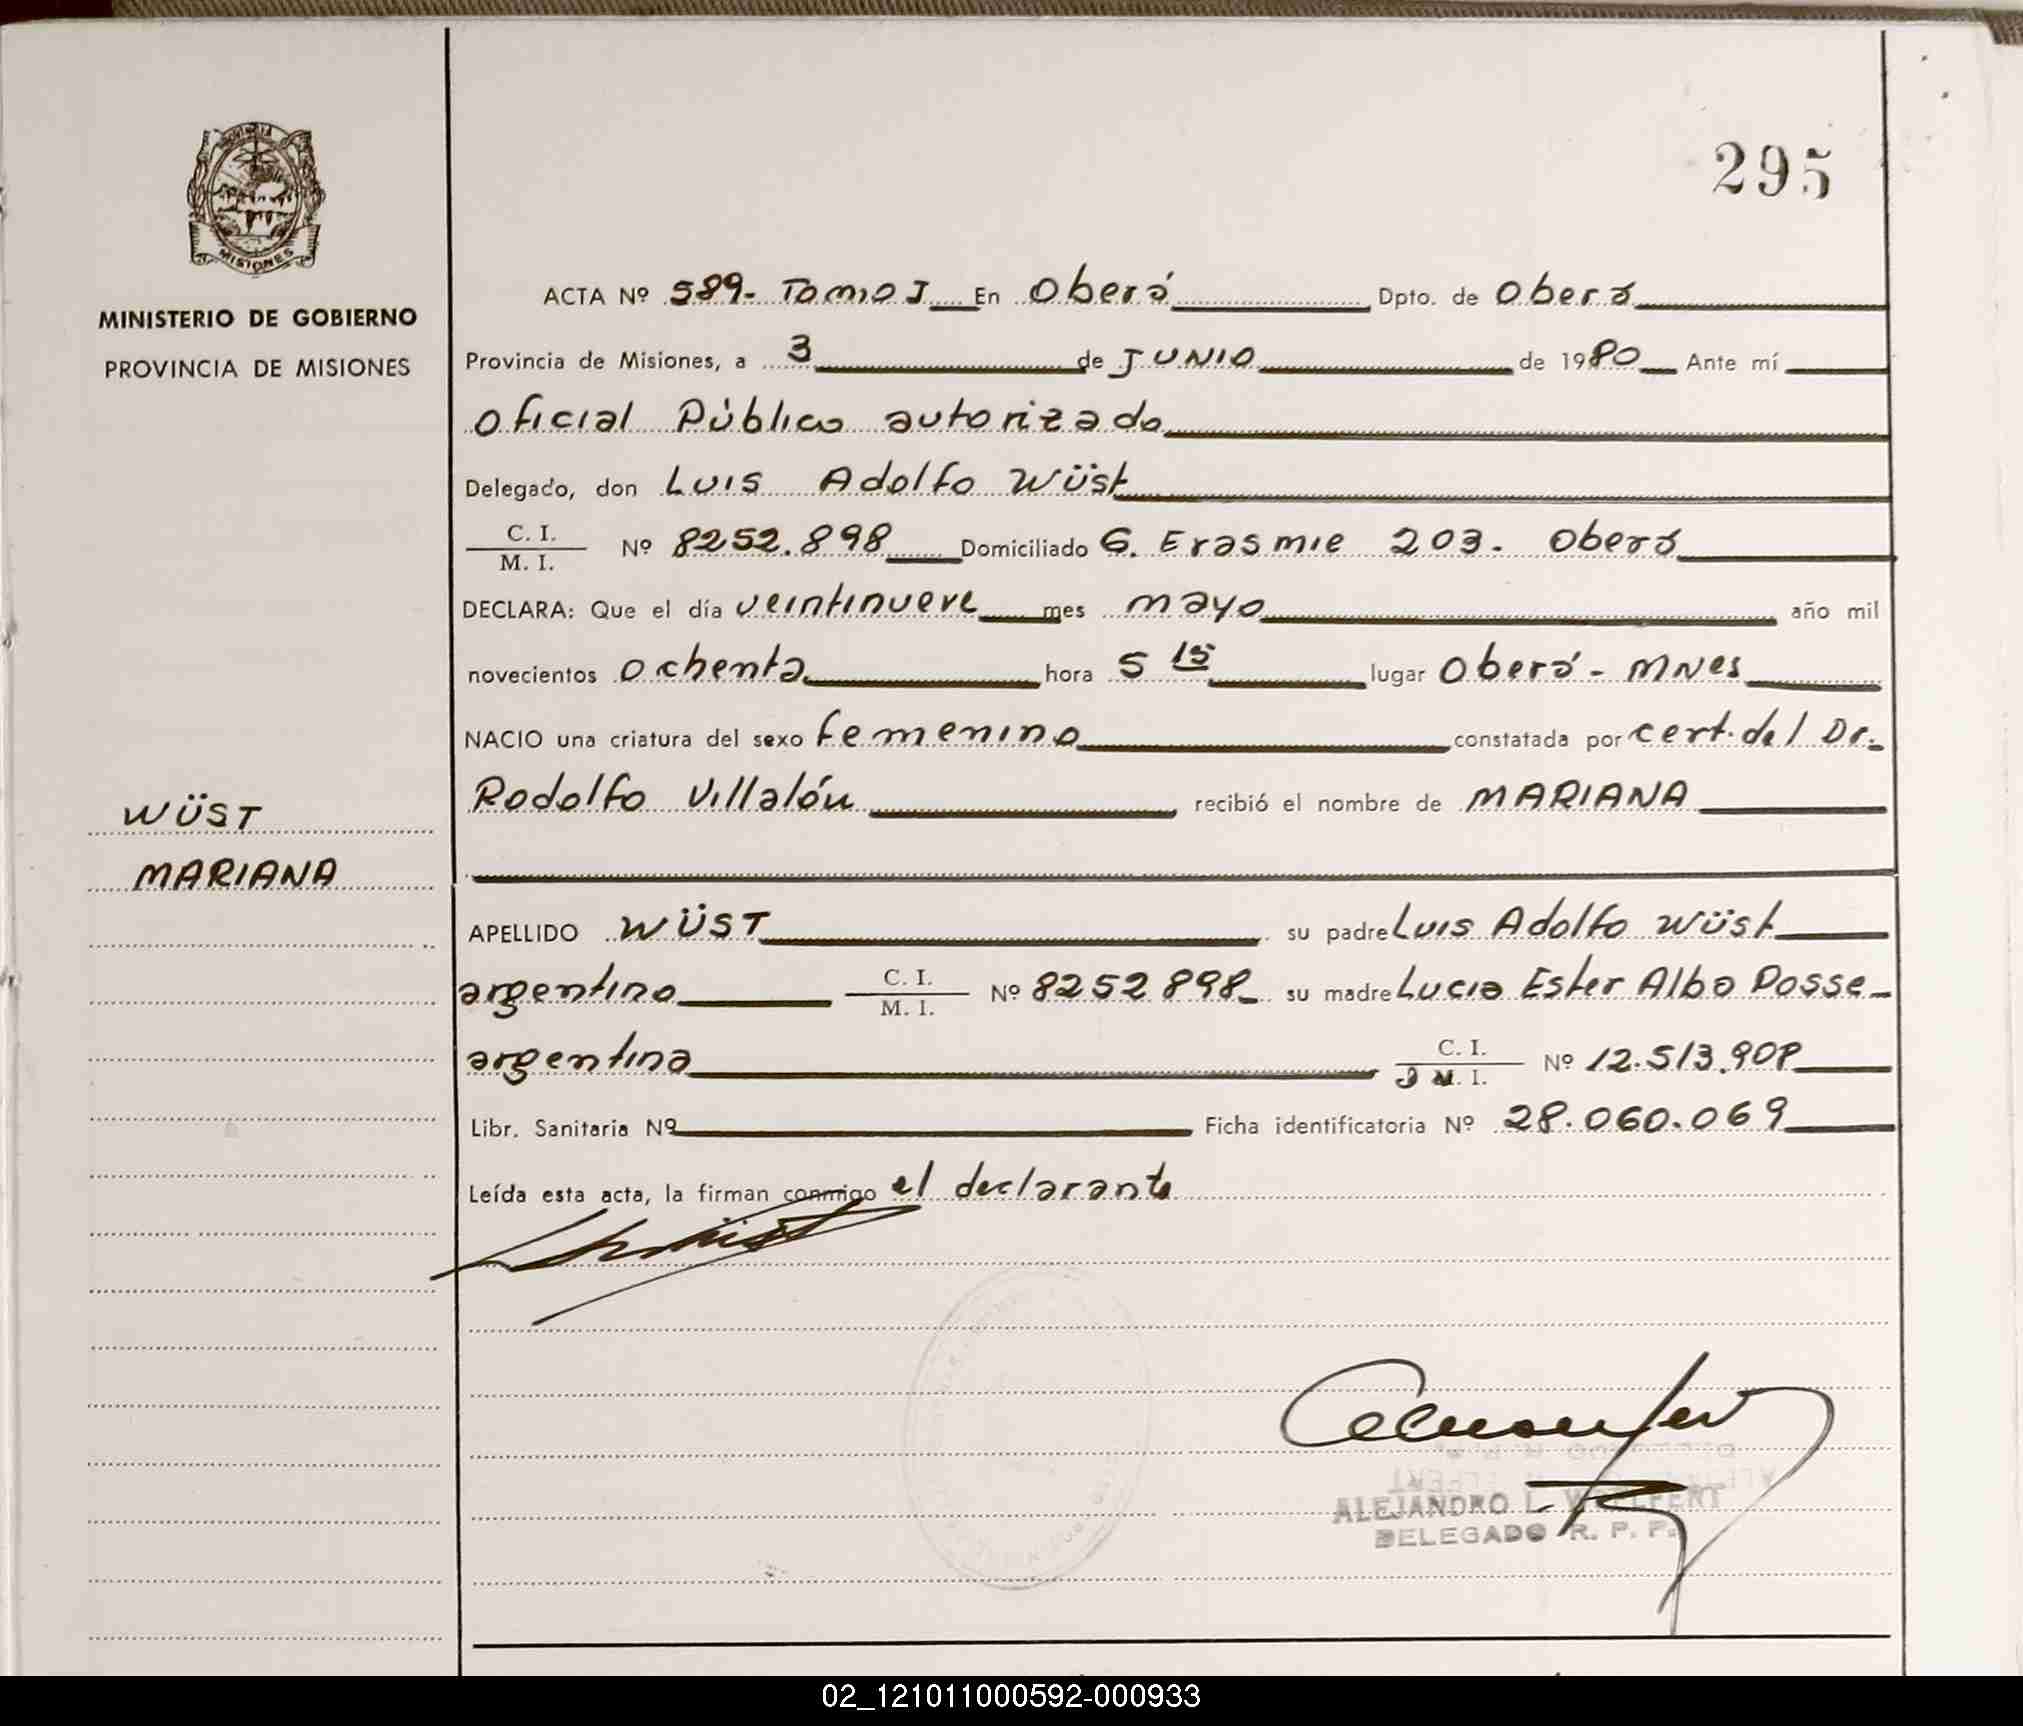 295
MISIONES
MINISTERIO DE GOBIERNO
PROVINCIA DE MISIONES
WÜST
MARIANA
ACTA Nº 589- Tomo I En Oberá Dpto. de Oberá
Provincia de Misiones, a 3 de JUNIO de 1980 Ante mí
Oficial Público autorizado
Delegado, don Luis Adolfo Wüst
C. I.
M. I. Nº 8252.898 Domiciliado G. Erasmie 203. Oberá
DECLARA: Que el día veintinueve mes mayo año mil
novecientos ochenta hora 5 15 lugar Oberá - MNes
NACIO una criatura del sexo femenino constatada por cert. del Dr.
Rodolfo Villalón recibió el nombre de MARIANA
APELLIDO WÜST su padre Luis Adolfo Wüst
argentino C. I.
M. I. Nº 8252898 su madre Lucia Ester Albo Posse
argentina C. I.
M. I. Nº 12.513.908
Libr. Sanitaria Nº Ficha identificatoria Nº 28.060.069
Leída esta acta, la firman conmigo el declarante
ALEJANDRO L.
DELEGADO R. P. P.
02_121011000592-000933